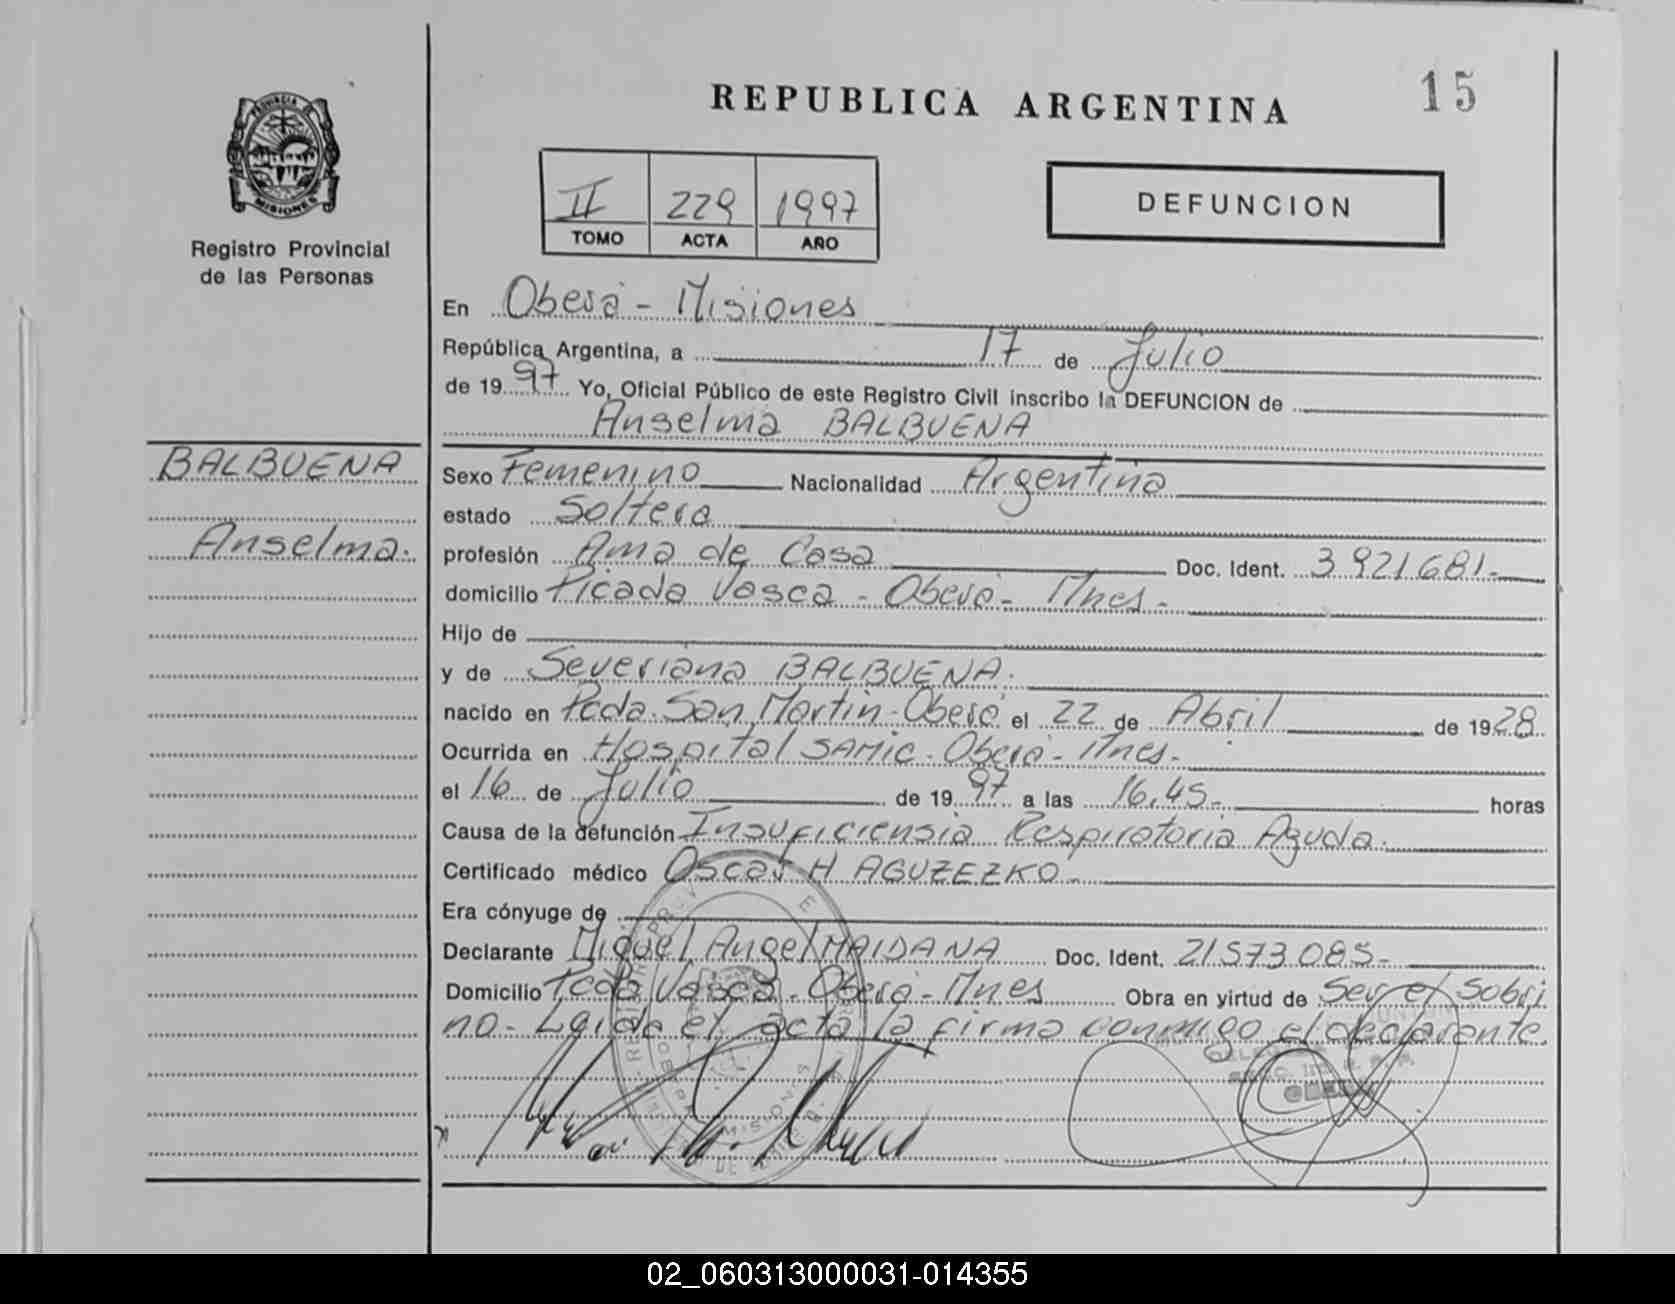 REPUBLICA ARGENTINA
15
PROVINCIA DE
MISIONES
Registro Provincial
de las Personas
II 229 1997
TOMO ACTA AÑO
DEFUNCION
En Oberá - Misiones
República Argentina, a 17 de Julio
de 1997 Yo, Oficial Público de este Registro Civil inscribo la DEFUNCION de
Anselma BALBUENA
BALBUENA
Anselma.
Sexo Femenino Nacionalidad Argentina
estado Soltera
profesión Ama de Casa Doc. Ident. 3921681-
domicilio Picada Vasca - Oberá - Mnes -
Hijo de
y de Severiana BALBUENA.
nacido en Pcda. San Martin - Oberá el 22 de Abril de 1928
Ocurrida en Hospital SAMIC - Oberá - Mnes -
el 16 de Julio de 1997 a las 16,45- horas
Causa de la defunción Insuficiensia Respiratoria Aguda.
Certificado médico Oscar H AGUZEZKO -
Era cónyuge de
Declarante Miguel Angel MAIDANA Doc. Ident. 21573085-
Domicilio Pcda Vasca - Oberá - Mnes Obra en virtud de Ser el Sobri
no - Leida el acta la firma conmigo el declarante.
02_060313000031-014355